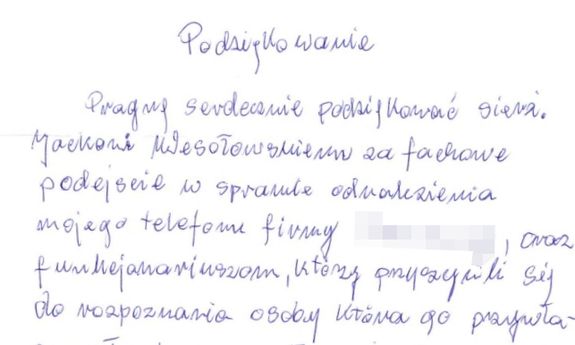 Podziękowanie
Pragnę serdecznie podziękować sierż.
Jackowi Wesołowskiemu za fachowe
podejście w sprawie odnalezienia
mojego telefonu firmy , oraz
funkcjonariuszom, którzy przyczynili się
do rozpoznania osoby która go przywła-